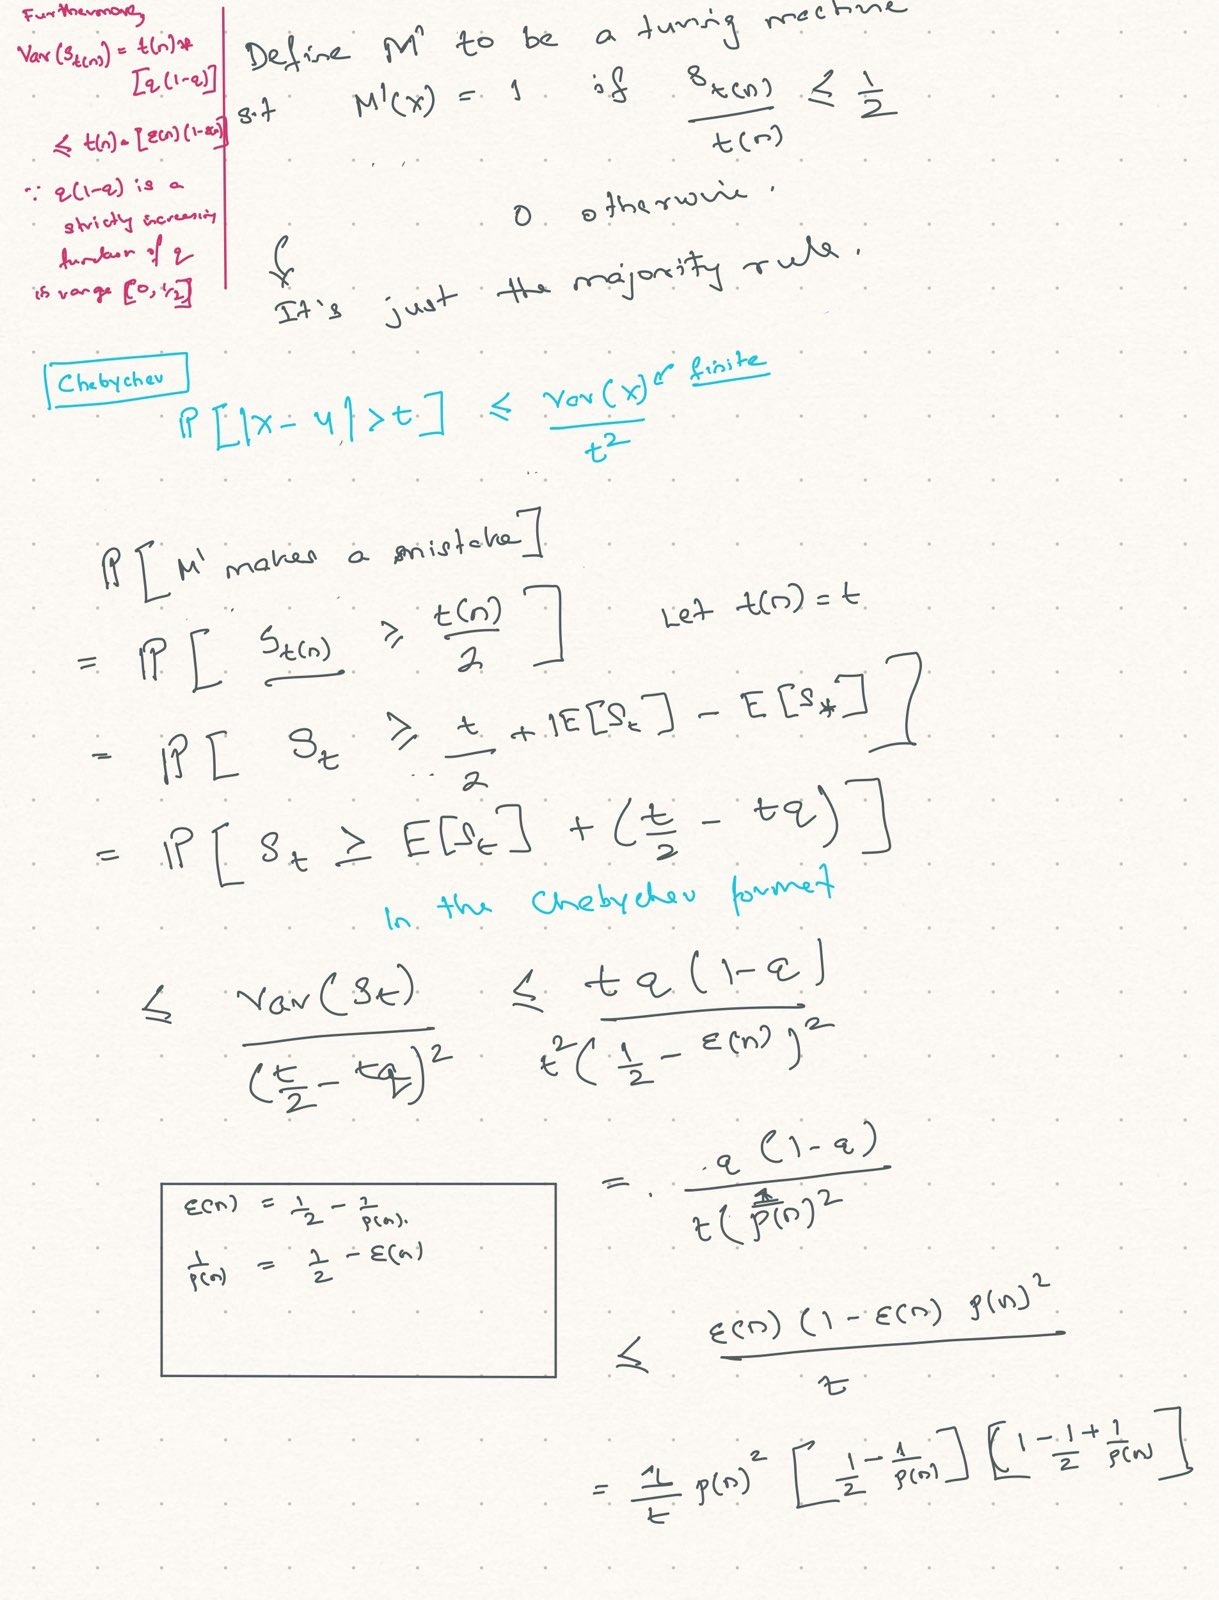 Furthermore,
Var(S_t(n)) = t(n)*
[q(1-q)]
≤ t(n)·[ε(n)(1-ε(n)]
∵ q(1-q) is a
strictly increasing
function of q
is range [0, 1/2]
Define M' to be a turing machine
s.t M'(x) = 1 if S_t(n)/t(n) ≤ 1/2
0 otherwise.
It's just the majority rule.
Chebychev
ℙ[|X - μ| > t] ≤ Var(X)/t² finite
ℙ[M' makes a mistake]
= ℙ[S_t(n) ≥ t(n)/2] Let t(n) = t
= ℙ[S_t ≥ t/2 + 𝔼[S_t] - E[S_*]]
= ℙ[S_t ≥ E[S_t] + (t/2 - tq)]
In the Chebychev format
≤ Var(S_t)/(t/2 - tq)² ≤ tq(1-q)/t²(1/2 - ε(n))²
= q(1-q)/t(1/p(n))²
ε(n) = 1/2 - 1/p(n).
1/p(n) = 1/2 - ε(n)
≤ ε(n)(1-ε(n) p(n)²/t
= 1/t p(n)² [1/2 - 1/p(n)] [1 - 1/2 + 1/p(n)]